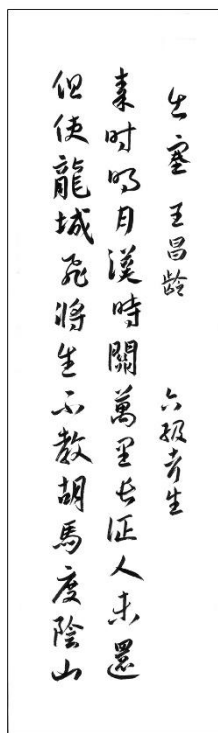 出塞 王昌龄 六级考生
秦时明月漢時關萬里长征人未還
但使龍城飛將在不教胡馬度陰山